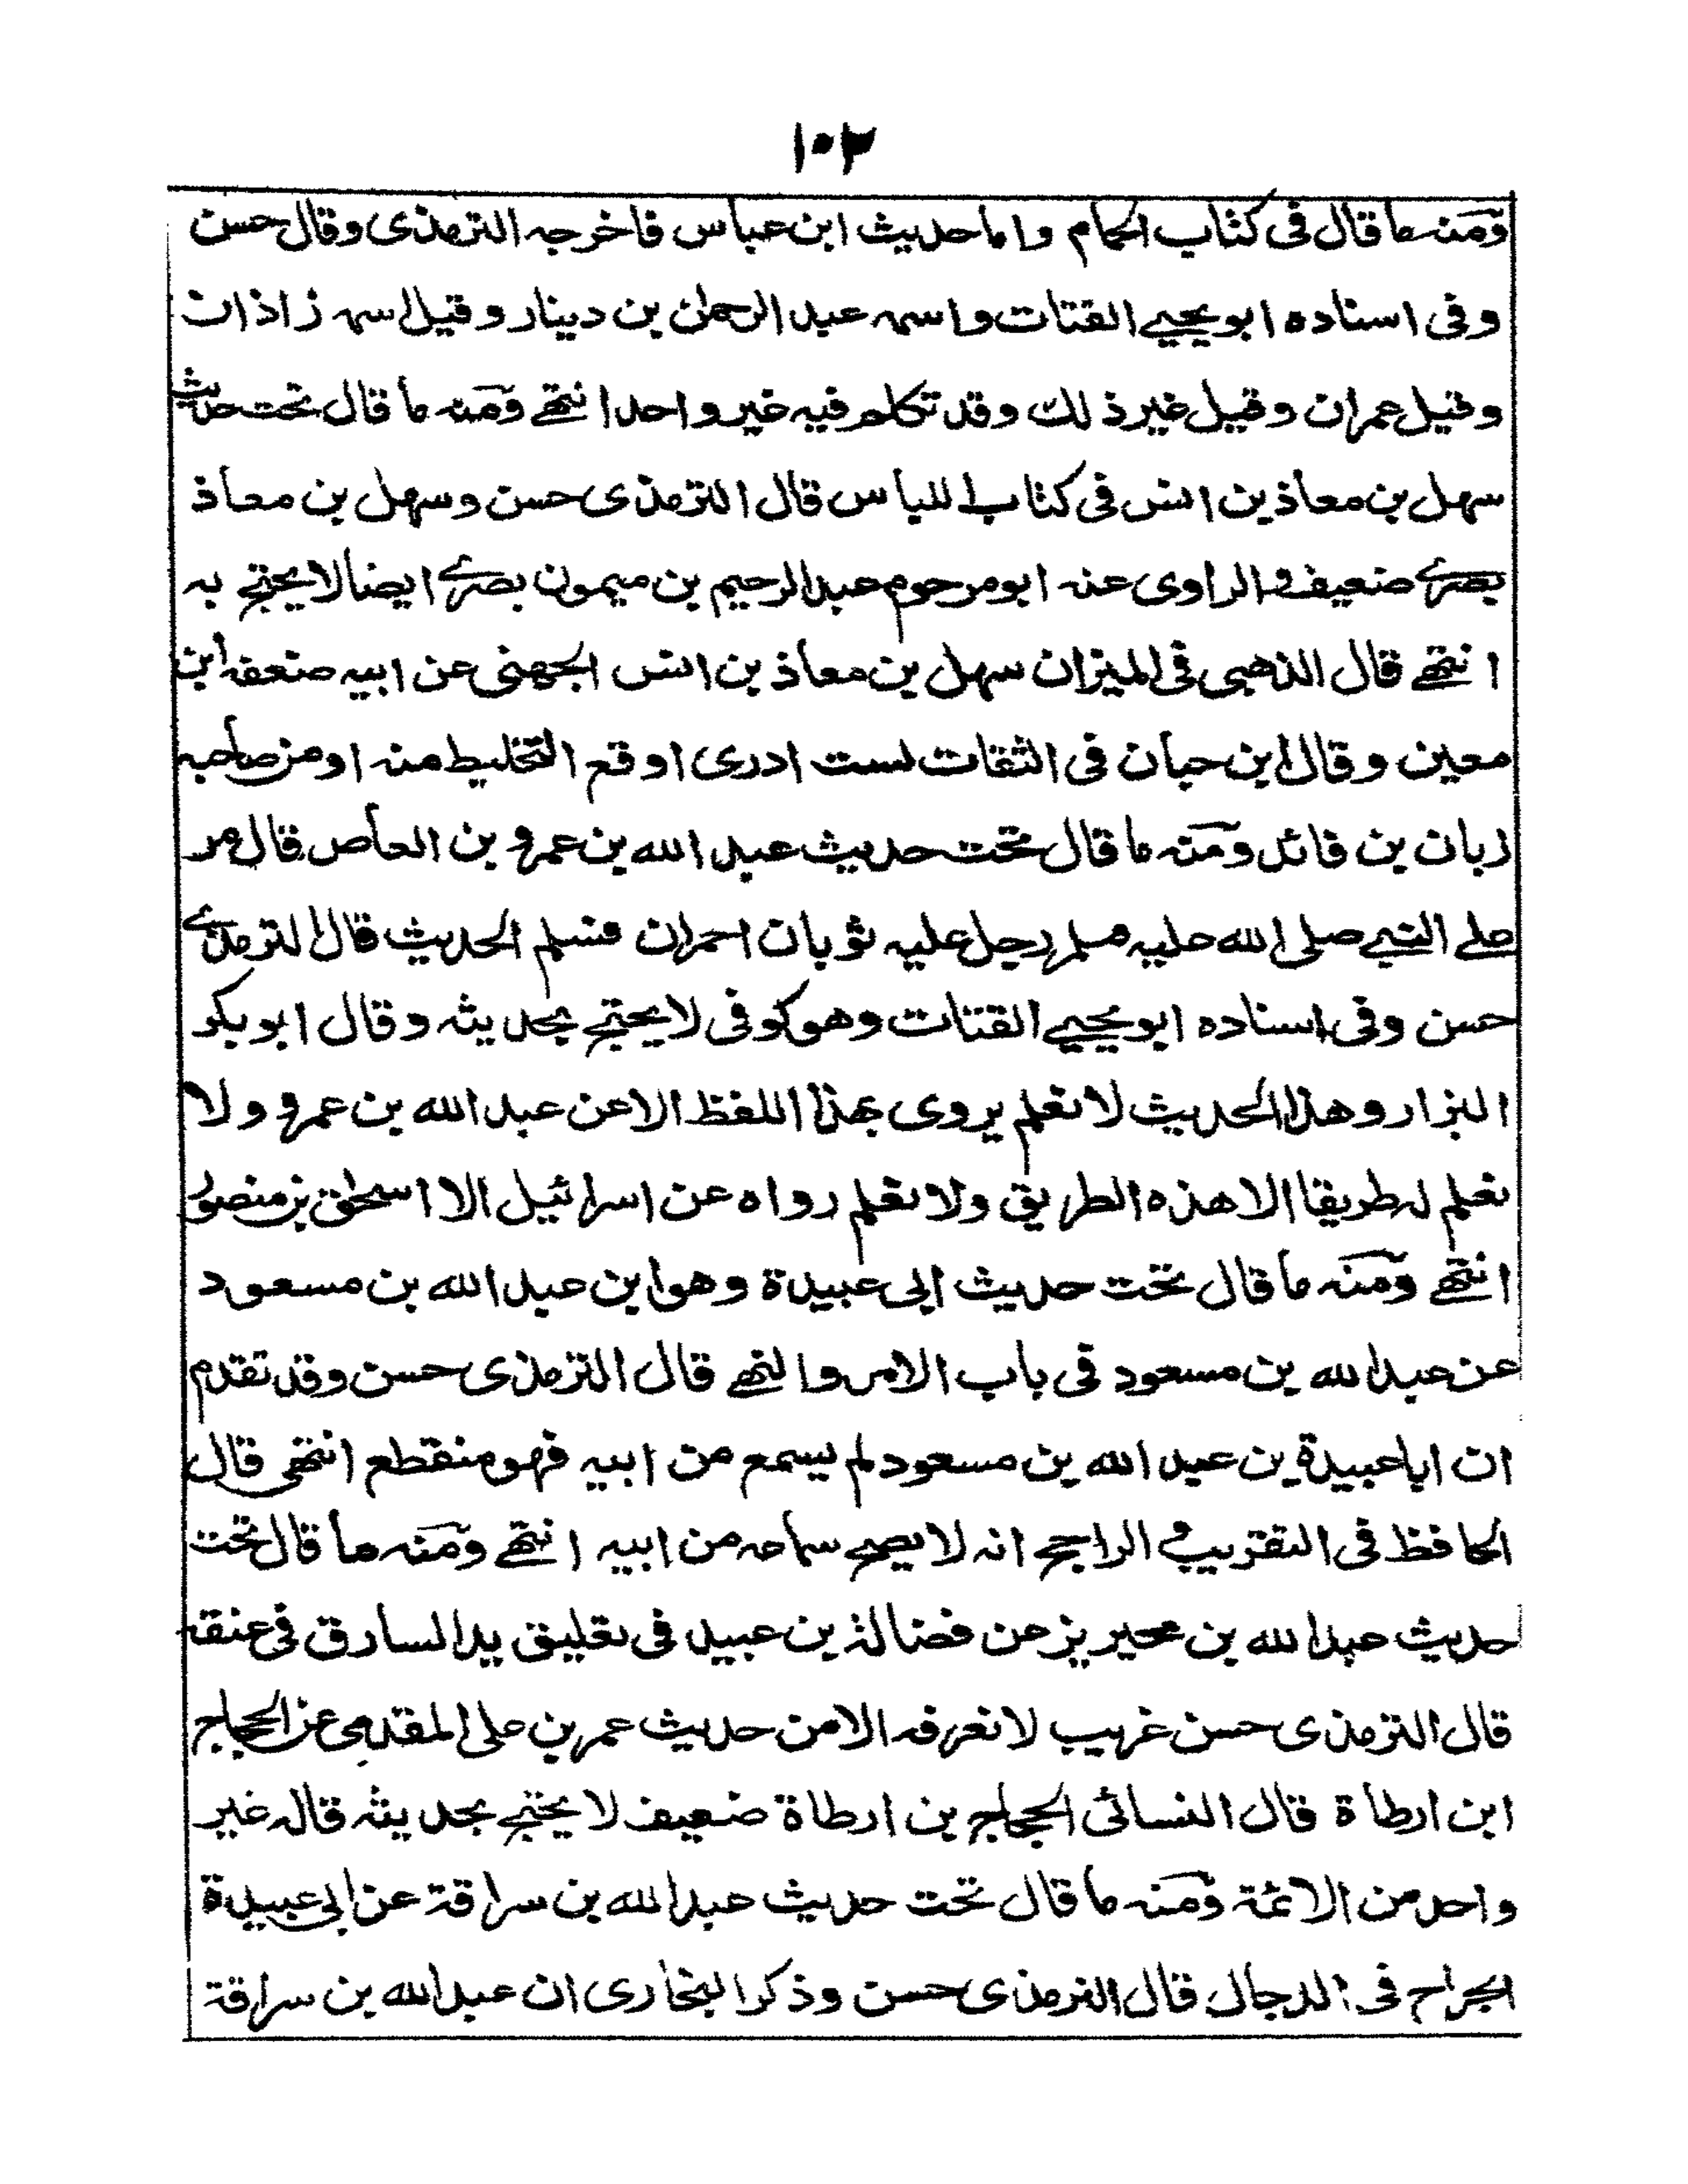 ١٠٢
ومنه ما قال فى كتاب الحمام واما حديث ابن عباس فاخرجه الترمذى وقال حسن
وفى اسناده ابو يحيے القتات واسمه عبد الرحمٰن بن دينار وقيل اسمه زاذان
وقيل عمران وقيل غير ذلك وقد تكلم فيه غير واحد انتهے ومنه ما قال تحت حديث
سهل بن معاذ بن انس فى كتاب اللباس قال الترمذى حسن وسهل بن معاذ
بصرے ضعيف والراوى عنه ابو مرحوم عبد الرحيم بن ميمون بصرے ايضا لا يحتج به
انتهے قال الذهبى فى الميزان سهل بن معاذ بن انس الجهنى عن ابيه ضعفه ابن
معين وقال ابن حبان فى الثقات لست ادرى اوقع التخليط منه او من صاحبه
زبان بن فائد ومنه ما قال تحت حديث عبد الله بن عمرو بن العاص قال مر
علے النبے صلى الله عليه وسلم رجل عليه ثوبان احمران فسلم الحديث قال الترمذے
حسن وفى اسناده ابو يحيے القتات وهو كوفى لا يحتج بحديثه وقال ابو بكر
البزار وهذا الحديث لا نعلم يروى بهذا اللفظ الا عن عبد الله بن عمرو ولا
نعلم له طريقا الا هذه الطريق ولا نعلم رواه عن اسرائيل الا اسحٰق بن منصور
انتهے ومنه ما قال تحت حديث ابى عبيدة وهو ابن عبد الله بن مسعود
عن عبد الله بن مسعود فى باب الامر والنهے قال الترمذى حسن وقد تقدم
ان ابا عبيدة بن عبد الله بن مسعود لم يسمع من ابيه فهو منقطع انتهى قال
الحافظ فى التقريب والراجح انه لا يصح سماعه من ابيه انتهے ومنه ما قال تحت
حديث عبد الله بن محيريز عن فضالة بن عبيد فى تعليق يد السارق فى عنقه
قال الترمذى حسن غريب لا نعرفه الا من حديث عمر بن على المقدمى عن الحجاج
ابن ارطاة قال النسائى الحجاج بن ارطاة ضعيف لا يحتج بحديثه قاله غير
واحد من الائمة ومنه ما قال تحت حديث عبد الله بن سراقة عن ابى عبيدة
الجراح فى الدجال قال الترمذى حسن وذكر البخارى ان عبد الله بن سراقة